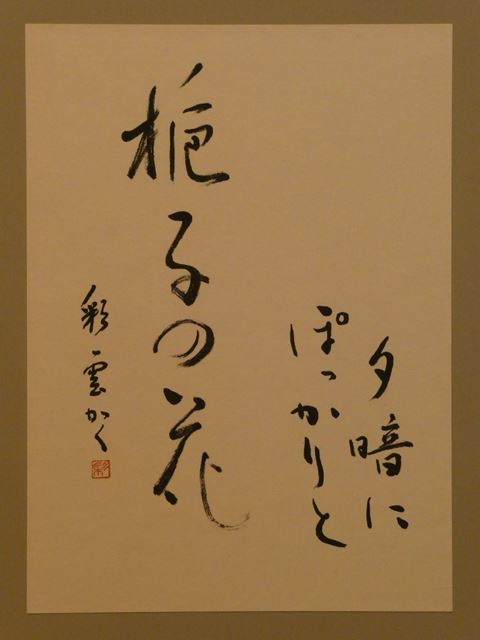 夕暗に
ぽっかりと
梔子の花
彩雲かく
彩